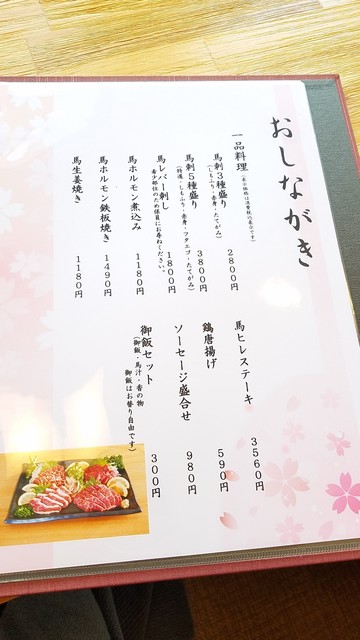 おしながき
一品料理(表示価格は消費税込表示です)
馬刺3種盛り 2800円
(しもふり・赤身・たてがみ)
馬刺5種盛り 3800円
(特選・しもふり・赤身・フタエゴ・たてがみ)
馬レバー刺し 1800円
希少部位のため係員にお尋ねください。
馬ホルモン煮込み 1180円
馬ホルモン鉄板焼き 1490円
馬生姜焼き 1180円
馬ヒレステーキ 3560円
鶏唐揚げ 590円
ソーセージ盛合せ 980円
御飯セット 300円
(御飯・馬汁・香の物
御飯はお替り自由です)